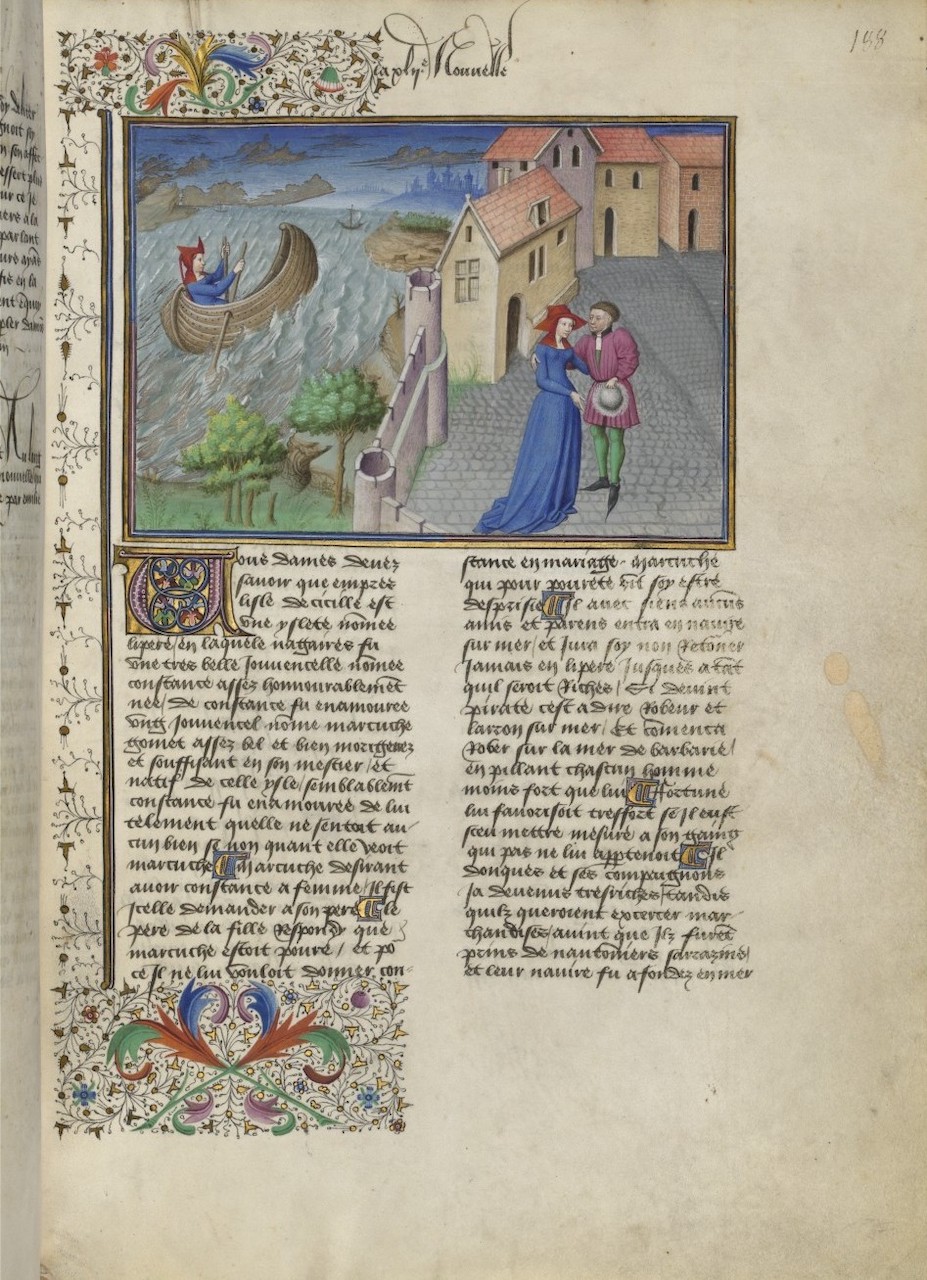 la xlije Nouuelle
188
Vous dames deuez
sauoir que empres
lisle de cicille est
vne yslete nomee
lipere / en laquele nagaires fu
vne tres belle Jouuencelle nomee
constance assez honnourablemēt
nee / de constance fu enamouree
vng Jouuencel nomē martuche
gomet assez bel et bien morigenez
et souffisant en son mestier / et
natif de celle ysle / semblablemēt
constance fu enamouree de lui
telement quelle ne sentoit au-
cun bien se non quant elle veoit
martuche Martuche desirant
auoir constance a femme / Il fist
Icelle demander a son pere Le
pere de la fille respondy que
martuche estoit poure / et po
ce Il ne lui vouloit donner con-
stance en mariage . Martuche
qui pour pourete vit soy estre
desprisie Il auec siens aucūs
amis et parens entra en nauire
sur mer / et Jura soy non retōner
Jamais en lipere Jusques a tāt
quil seroit riches / Si deuint
pirate cest a dire robeur et
larron sur mer / Et cōmenca
rober sur la mer de barbarie /
en pillant chascun homme
moins fort que lui Fortune
lui fauorisoit tresfort se Il eust
sceu mettre mesure a son gaing
qui pas ne lui apptenoit Il
donques et ses compaignons
Ja deuenus tresriches / tandis
quilz queroient excercer mar-
chandises / auint que Ilz furēt
prins de nautōniers sarrazins /
et leur nauire fu afondez en mer